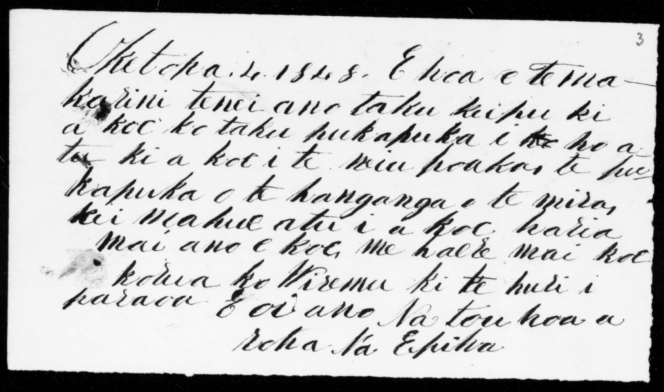 3
Oketopa. 4. 1848. E hoa e te ma
karini tenei ano taku kupu ki
a koe ko taku pukapuka i ho a
tu ki a koe i te wiu poaka, te pu
kapuka o te hanganga o te mira,
kei mahue atu i a koe, haria
mai ano e koe, me haere mai koe
korua ko Wiremu ki te huri i
paraoa E oi ano Na tou hoa a
roha Na Epiha